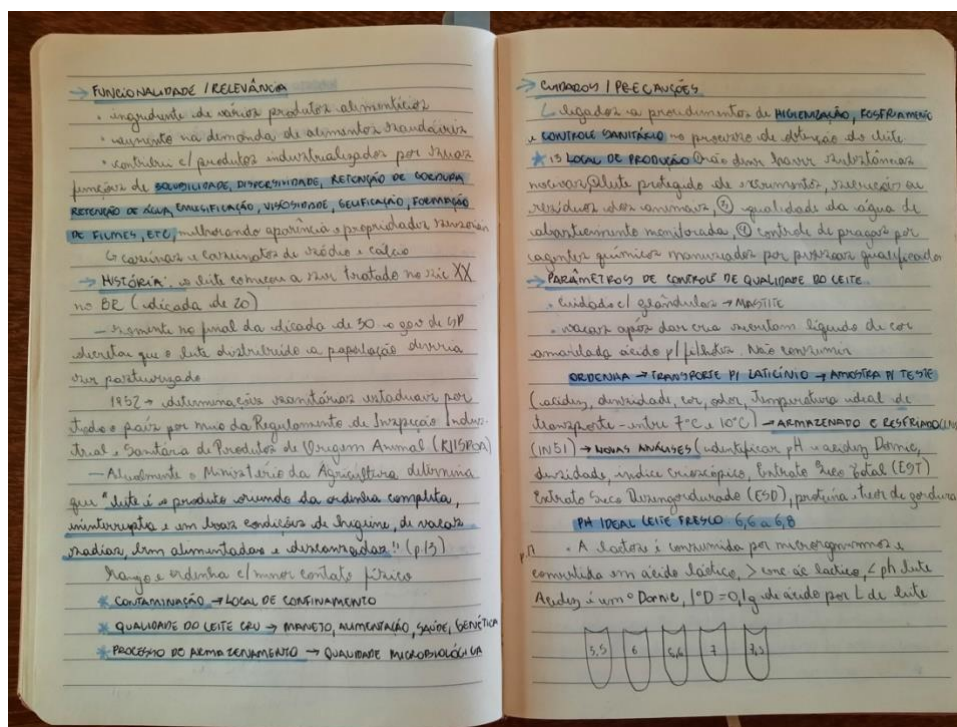 → FUNCIONALIDADE / RELEVÂNCIA
• ingrediente de vários produtos alimentícios
• aumento na demanda de alimentos saudáveis
• contribui c/ produtos industrializados por suas
funções de SOLUBILIDADE, DISPERSIVIDADE, RETENÇÃO DE GORDURA
RETENÇÃO DE ÁGUA, EMULSIFICAÇÃO, VISCOSIDADE, GELIFICAÇÃO, FORMAÇÃO
DE FILMES, ETC, melhorando aparência e propriedades
↳ caseínas e caseinatos de sódio e cálcio
→ HISTÓRIA: o leite começou a ser tratado no séc XX
no BR (década de 20)
— somente no final da década de 30 o gov de SP
decretou que o leite distribuído a população deveria
ser pasteurizado
1952 → determinações sanitárias estaduais por
todo o país por meio do Regulamento de Inspeção Indus-
trial e Sanitária de Produtos de Origem Animal (RIISPOA)
— Atualmente o Ministério da Agricultura determina
que "leite é o produto oriundo da ordenha completa,
ininterrupta e em boas condições de higiene, de vacas
sadias, bem alimentadas e descansadas" (p.13)
Rango e ordenha c/ menor contato físico
* CONTAMINAÇÃO → LOCAL DE CONFINAMENTO
* QUALIDADE DO LEITE CRU → MANEJO, ALIMENTAÇÃO, SAÚDE, GENÉTICA
* PROCESSO DO ARMAZENAMENTO → QUALIDADE MICROBIOLÓGICA
→ CUIDADOS / PRECAUÇÕES
↳ ligados a procedimentos de HIGIENIZAÇÃO, RESFRIAMENTO
e CONTROLE SANITÁRIO no processo de obtenção do leite
* LOCAL DE PRODUÇÃO não deve haver substâncias
nocivas, ② leite protegido de excrementos, secreções ou
resíduos dos animais, ③ qualidade da água de
abastecimento monitorada, ④ controle de pragas por
agentes químicos manuseados por pessoas qualificadas
→ PARÂMETROS DE CONTROLE DE QUALIDADE DO LEITE.
• Cuidado c/ glândulas → MASTITE
• vacas após dar cria excretam líquido de cor
amarelada ácido p/ filhotes. Não consumir
ORDENHA → TRANSPORTE P/ LATICÍNIO → AMOSTRA P/ TESTE
(acidez, densidade, cor, odor, Temperatura ideal de
transporte - entre 7°C e 10°C) → ARMAZENADO E RESFRIADO
(IN51) → NOVAS ANÁLISES (identificar pH e acidez Dornic,
densidade, índice crioscópico, Extrato Seco Total (EST)
Extrato Seco Desengordurado (ESD), proteína e teor de gordura
PH IDEAL LEITE FRESCO 6,6 a 6,8
p.17 • A lactose é consumida por microrganismos e
convertida em ácido láctico, > conc ác lactico, < ph leite
Acidez é um ° Dornic, 1°D = 0,1g de ácido por L de leite
5,5 6 6,6 7 7,5